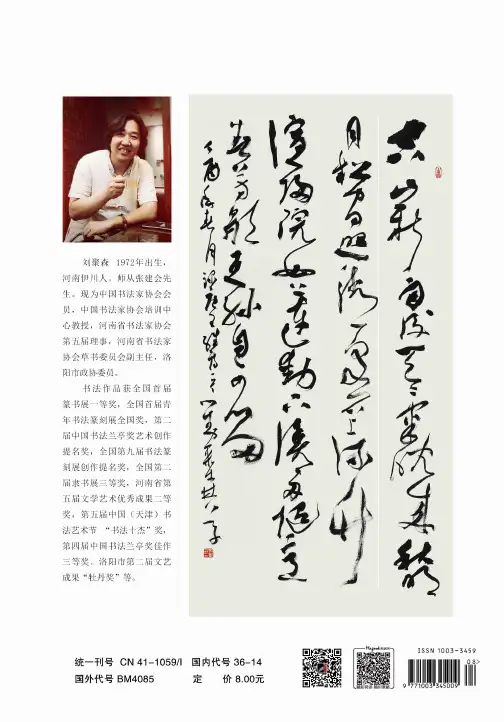 空山新雨後天氣晚來秋明
月松間照清泉石上流竹
喧歸浣女蓮動下漁舟隨意
春芳歇王孫自可留
刘聚森 1972年出生，
河南伊川人。师从张建会先
生。现为中国书法家协会会
员，中国书法家协会培训中
心教授，河南省书法家协会
第五届理事，河南省书法家
协会草书委员会副主任，洛
阳市政协委员。
书法作品获全国首届
篆书展一等奖，全国首届青
年书法篆刻展全国奖，第二
届中国书法兰亭奖艺术创作
提名奖，全国第九届书法篆
刻展创作提名奖，全国第二
届隶书展三等奖，河南省第
五届文学艺术优秀成果二等
奖，第五届中国（天津）书
法艺术节 “书法十杰”奖，
第四届中国书法兰亭奖佳作
三等奖。洛阳市第二届文艺
成果“牡丹奖”等。
统一刊号 CN 41-1059/I 国内代号 36-14
国外代号 BM4085 定 价 8.00元
ISSN 1003-3459
08>
9 771003 345009